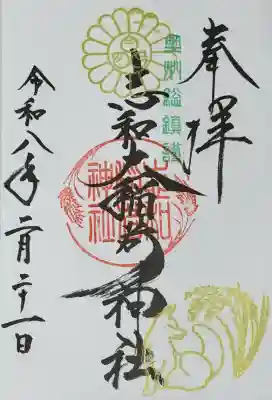 奉拝
奥州総鎮護
志和大稲荷神社
令和八年二月二十一日